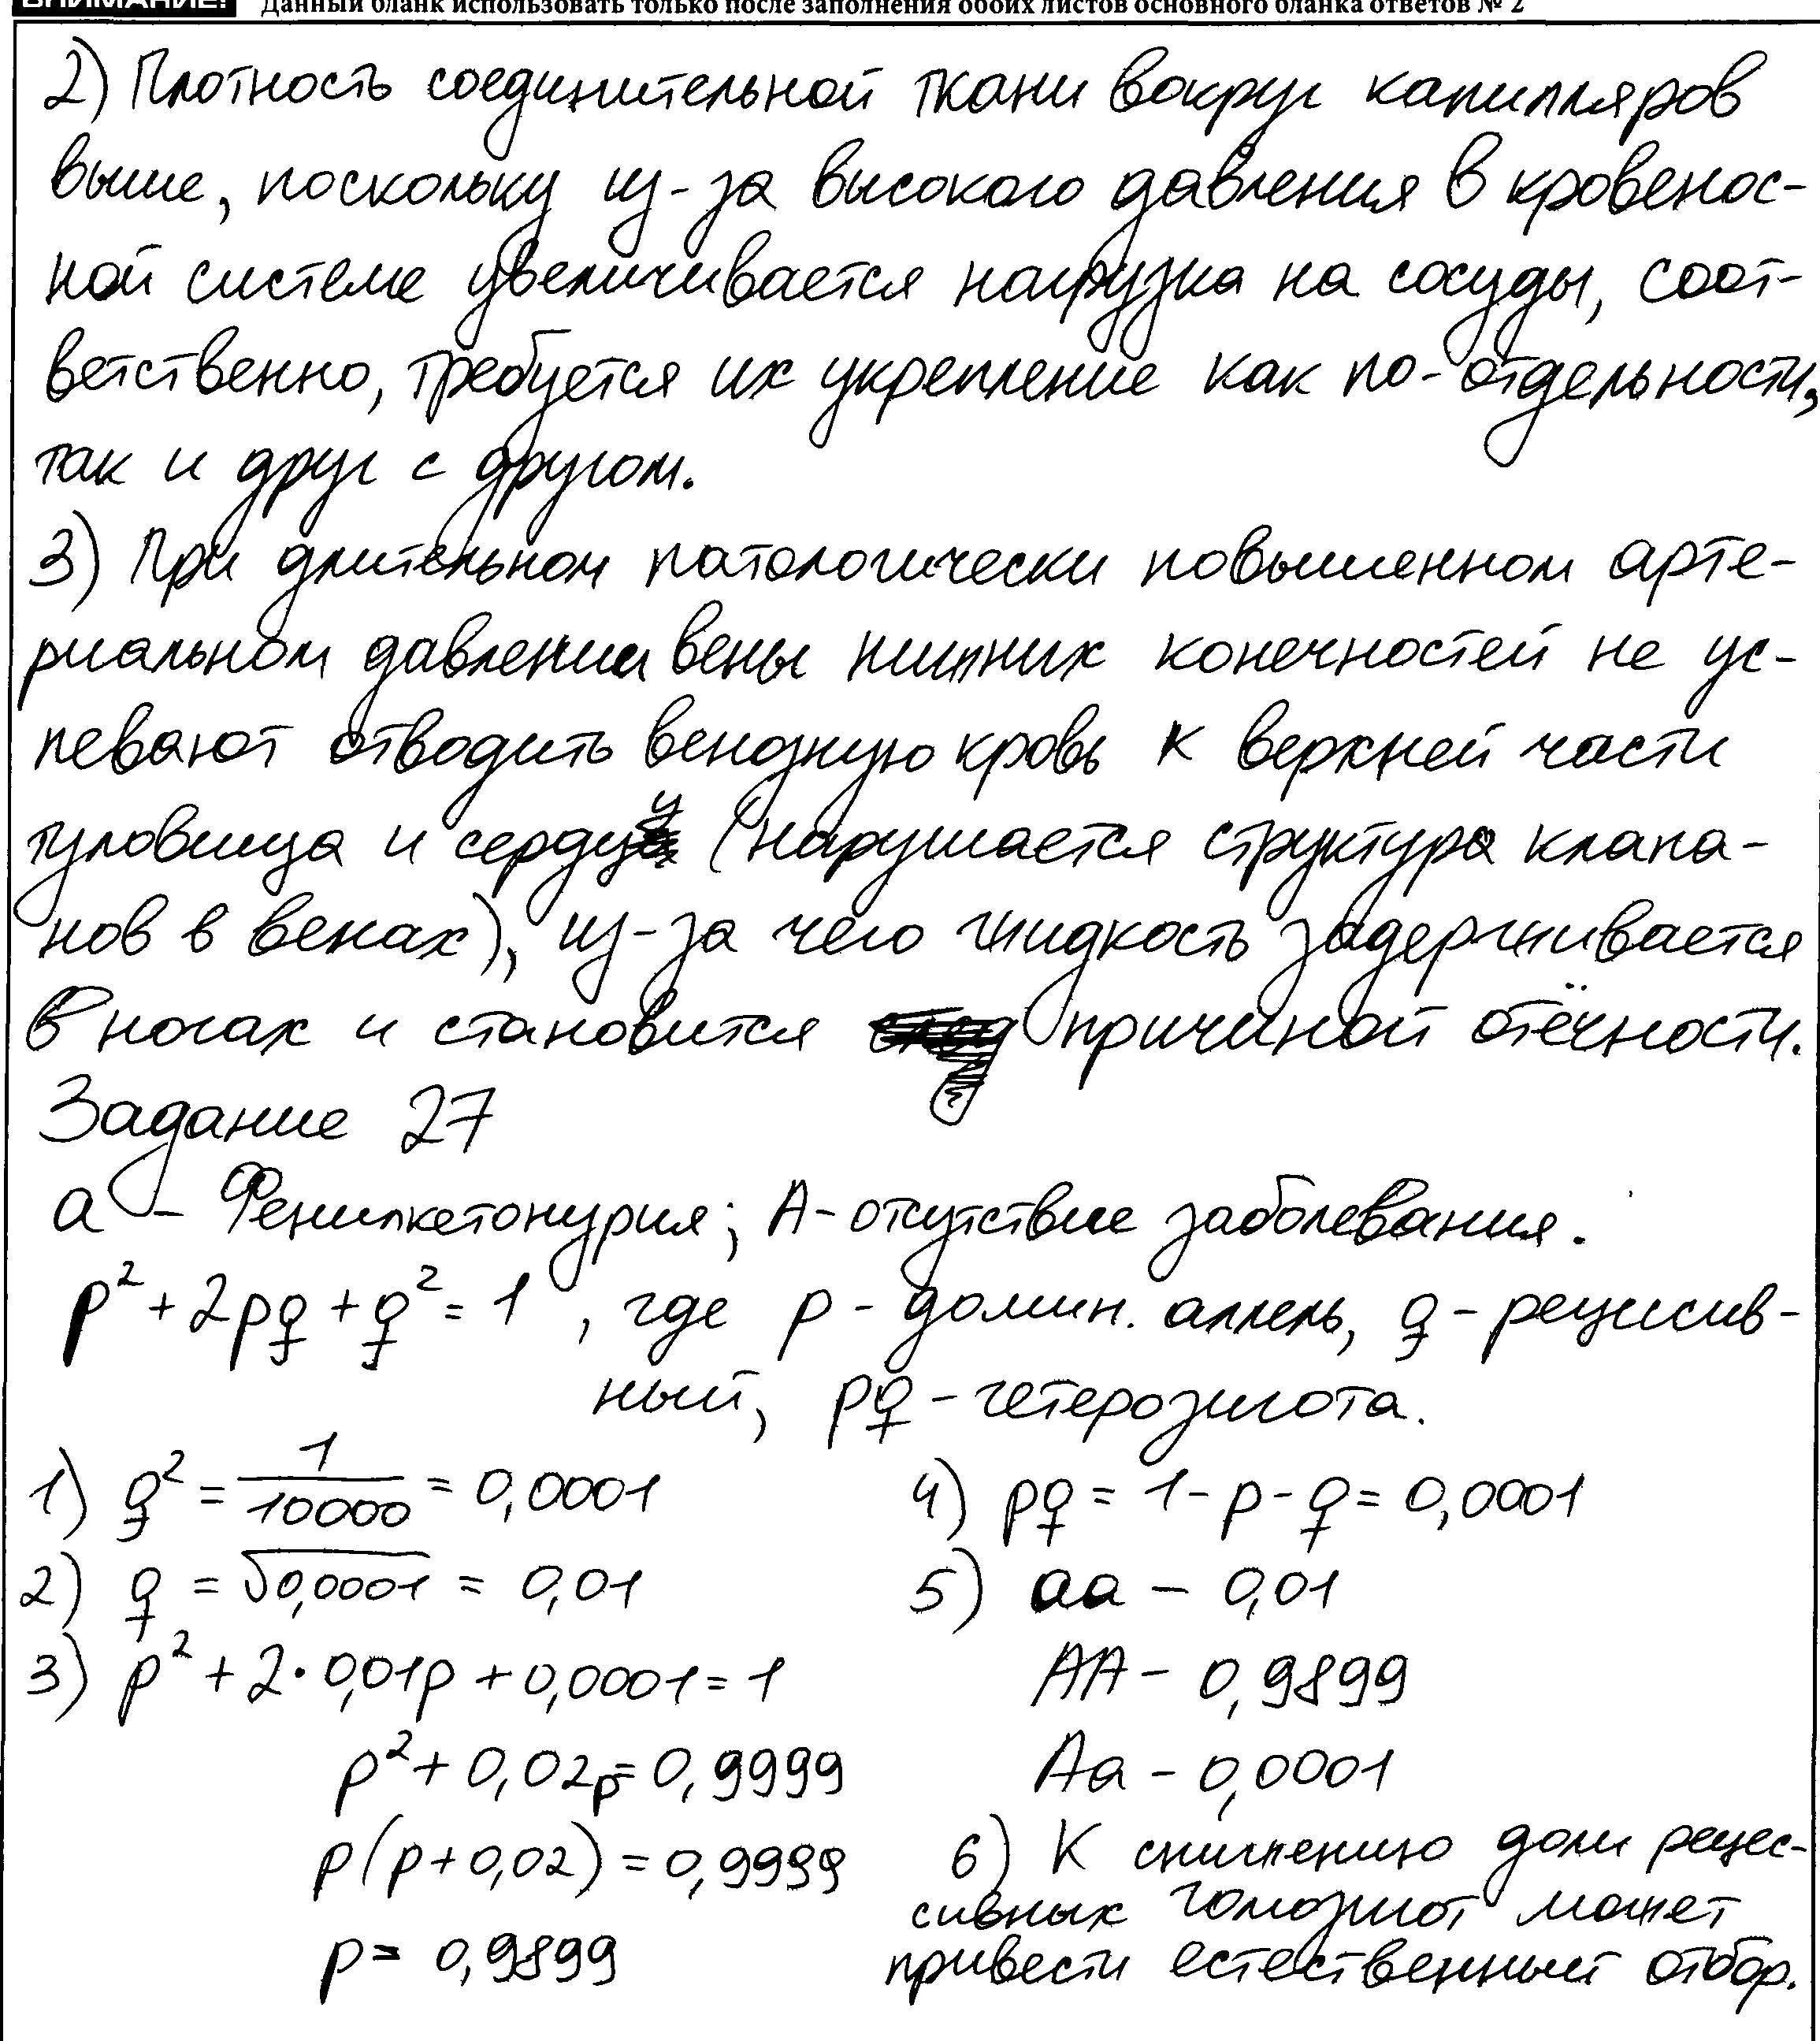 ВНИМАНИЕ! Данный бланк использовать только после заполнения обоих листов основного бланка ответов № 2
2) Плотность соединительной ткани вокруг капилляров
выше, поскольку из-за высокого давления в кровенос-
ной системе увеличивается нагрузка на сосуды, соот-
ветственно, требуется их укрепление как по-отдельности,
так и друг с другом.
3) При длительном патологически повышенном арте-
риальном давлении вены нижних конечностей не ус-
певают отводить венозную кровь к верхней части
туловища и сердцу (нарушается структура клапа-
нов в венах), из-за чего жидкость задерживается
в ногах и становится причиной отёчности.
Задание 27
a - Фенилкетонурия; A - отсутствие заболевания.
p² + 2pq + q² = 1, где p - домин. аллель, q - рецессив-
ный, pq - гетерозигота.
1) q² = 1/10000 = 0,0001
2) q = √0,0001 = 0,01
3) p² + 2·0,01p + 0,0001 = 1
p² + 0,02p = 0,9999
p(p+0,02) = 0,9999
p = 0,9899
4) pq = 1 - p - q = 0,0001
5) aa - 0,01
AA - 0,9899
Aa - 0,0001
6) К снижению доли рецес-
сивных гомозигот может
привести естественный отбор.